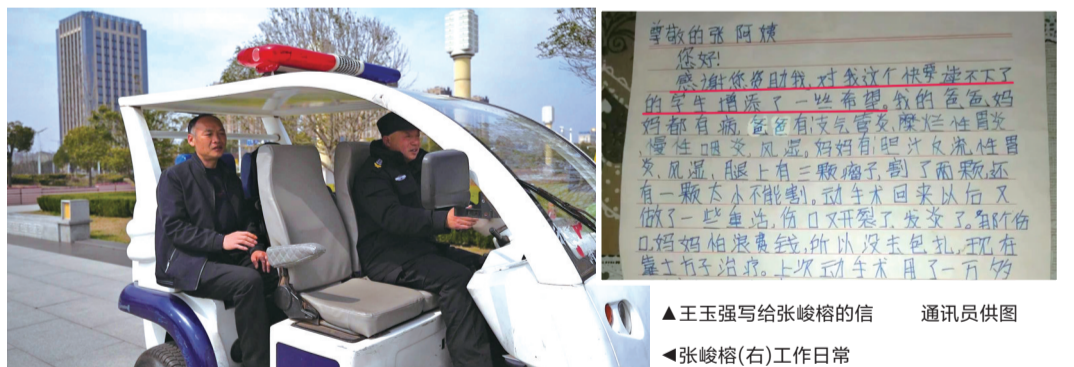 尊敬的张阿姨
您好!
感谢您资助我,对我这个快要读不下了
的学生增添了一些希望。我的爸爸妈
妈都有病,爸爸有支气管炎,糜烂性胃炎
、慢性咽炎、风湿。妈妈有胆汁反流性胃
炎、风湿,腿上有三颗瘤子,割了两颗,还
有一颗太小不能割。动手术回来以后又
做了一些重活,伤口又开裂了,发炎了。那个伤
口,妈妈怕浪费钱,所以没去包扎,现在
靠土方子治疗。上次动手术用了一万多
▲王玉强写给张峻榕的信 通讯员供图
◀张峻榕(右)工作日常